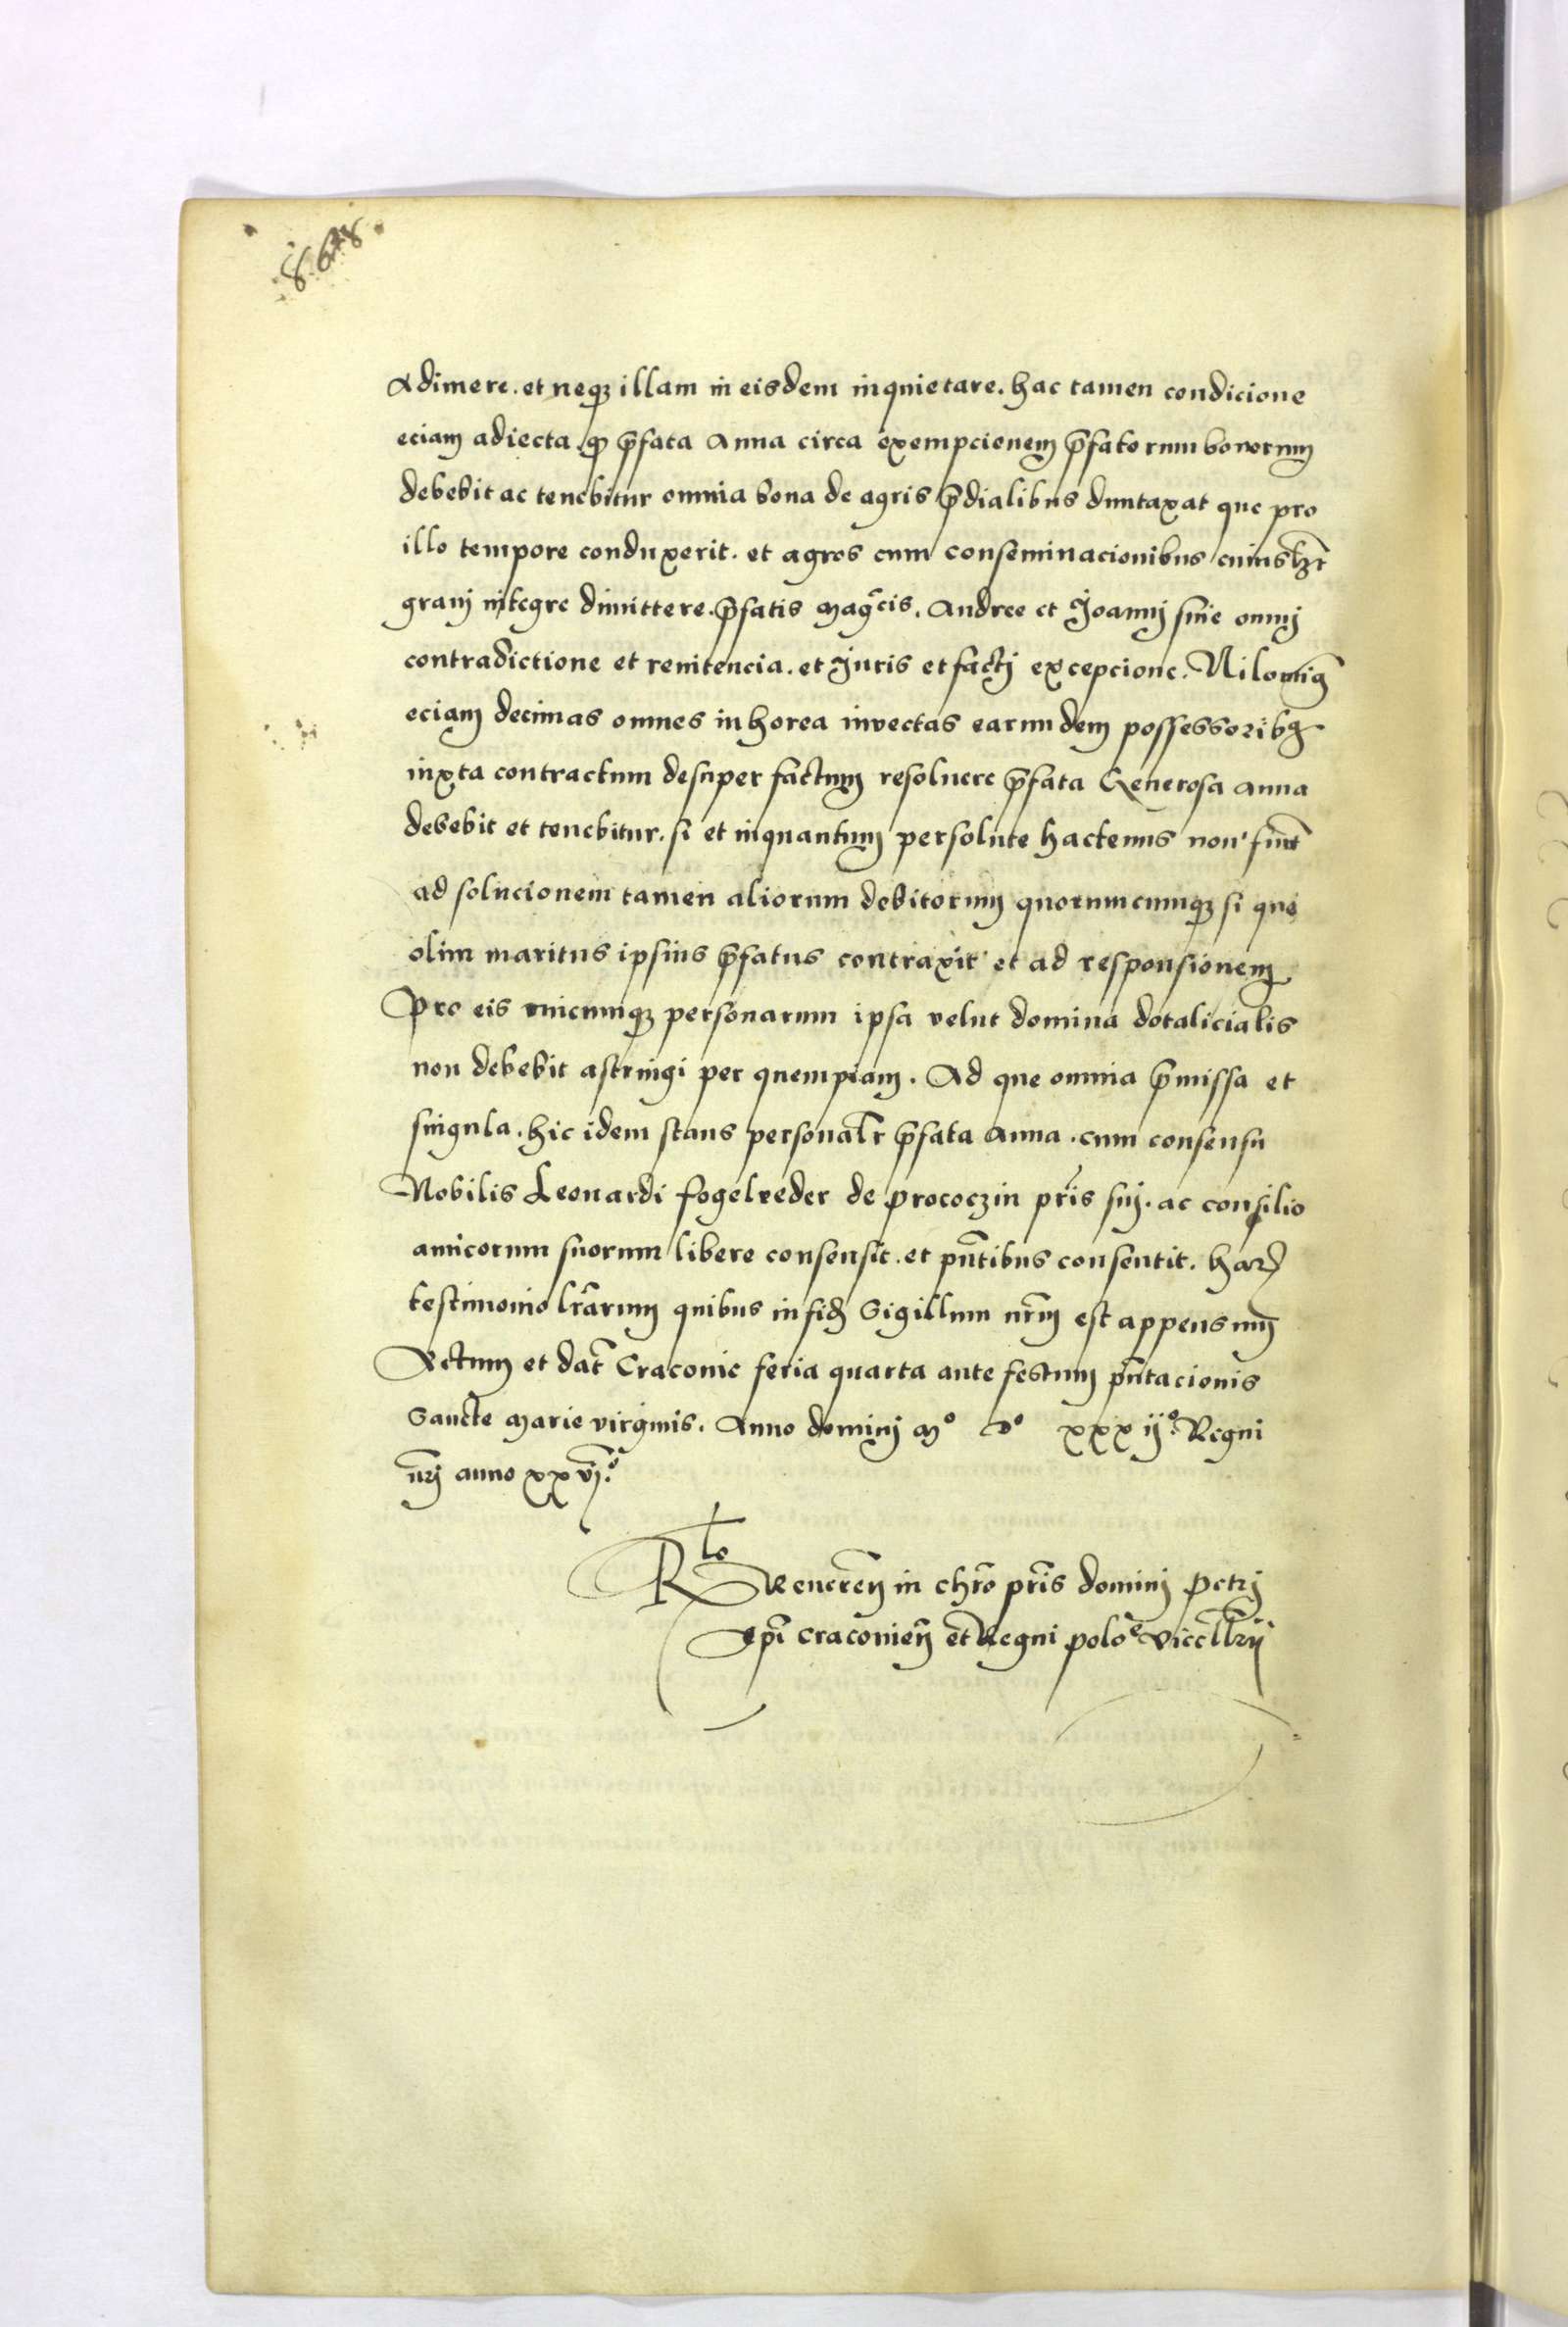 Adimere. et neqȝ illam in eisdem inquietare. hac tamen condicione
eciam adiecta. qꝙ p̄fata Anna circa exempcionem p̄fatorum bonorum
debebit ac tenebitur omnia bona de agris p̄dialibus duntaxat que pro
illo tempore conduxerit. et agros cum conseminacionibus cuiuslꝫt
granj integre dimittere. p̄fatis mag̃cis. Andree et Joannj sine omnj
contradictione et renitencia. et Juris et factj excepcione. Nilominꝯ
eciam decimas omnes in horea invectas earumdem possessoribꝯ
iuxta contractum desuper factum resoluere p̄fata Generosa Anna
debebit et tenebitur. si et inquantum persolute hactenus non sunt
ad solucionem tamen aliorum debitorum quorumcumqȝ si que
olim maritus ipsius p̄fatus contraxit et ad responsionem
Pro eis cuicumqȝ personarum ipsa velut domina dotalicialis
non debebit astringi per quempiam. Ad que omnia p̄missa et
singula. hic idem stans personalr̄ p̄fata Anna. cum consensu
Nobilis Leonardi fogelveder de prococzin pr̄is suj. ac consilio
amicorum suorum libere consensit. et pn̄tibus consentit. harꝝ
testimonio lr̄arum quibus in fidē Sigillum nr̄m est appensum
Actum et dat̄ Cracouie feria quarta ante festum pn̄tacionis
Sancte Marie virginis. Anno dominj Mº dº xxxijº. Regni
nr̄j anno xxvjº.
Rlo Reueren̄ in chr̄o pr̄is dominj Petrj
Epi Cracouien̄ et Regni polo̅e vicecllr̄ij